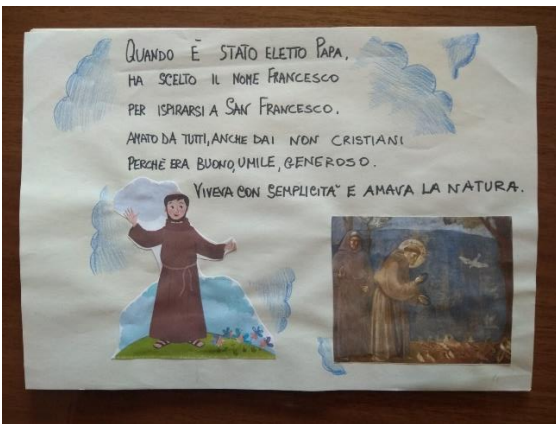 QUANDO È STATO ELETTO PAPA,
HA SCELTO IL NOME FRANCESCO
PER ISPIRARSI A SAN FRANCESCO.
AMATO DA TUTTI, ANCHE DAI NON CRISTIANI
PERCHÈ ERA BUONO, UMILE, GENEROSO.
VIVEVA CON SEMPLICITÀ E AMAVA LA NATURA.